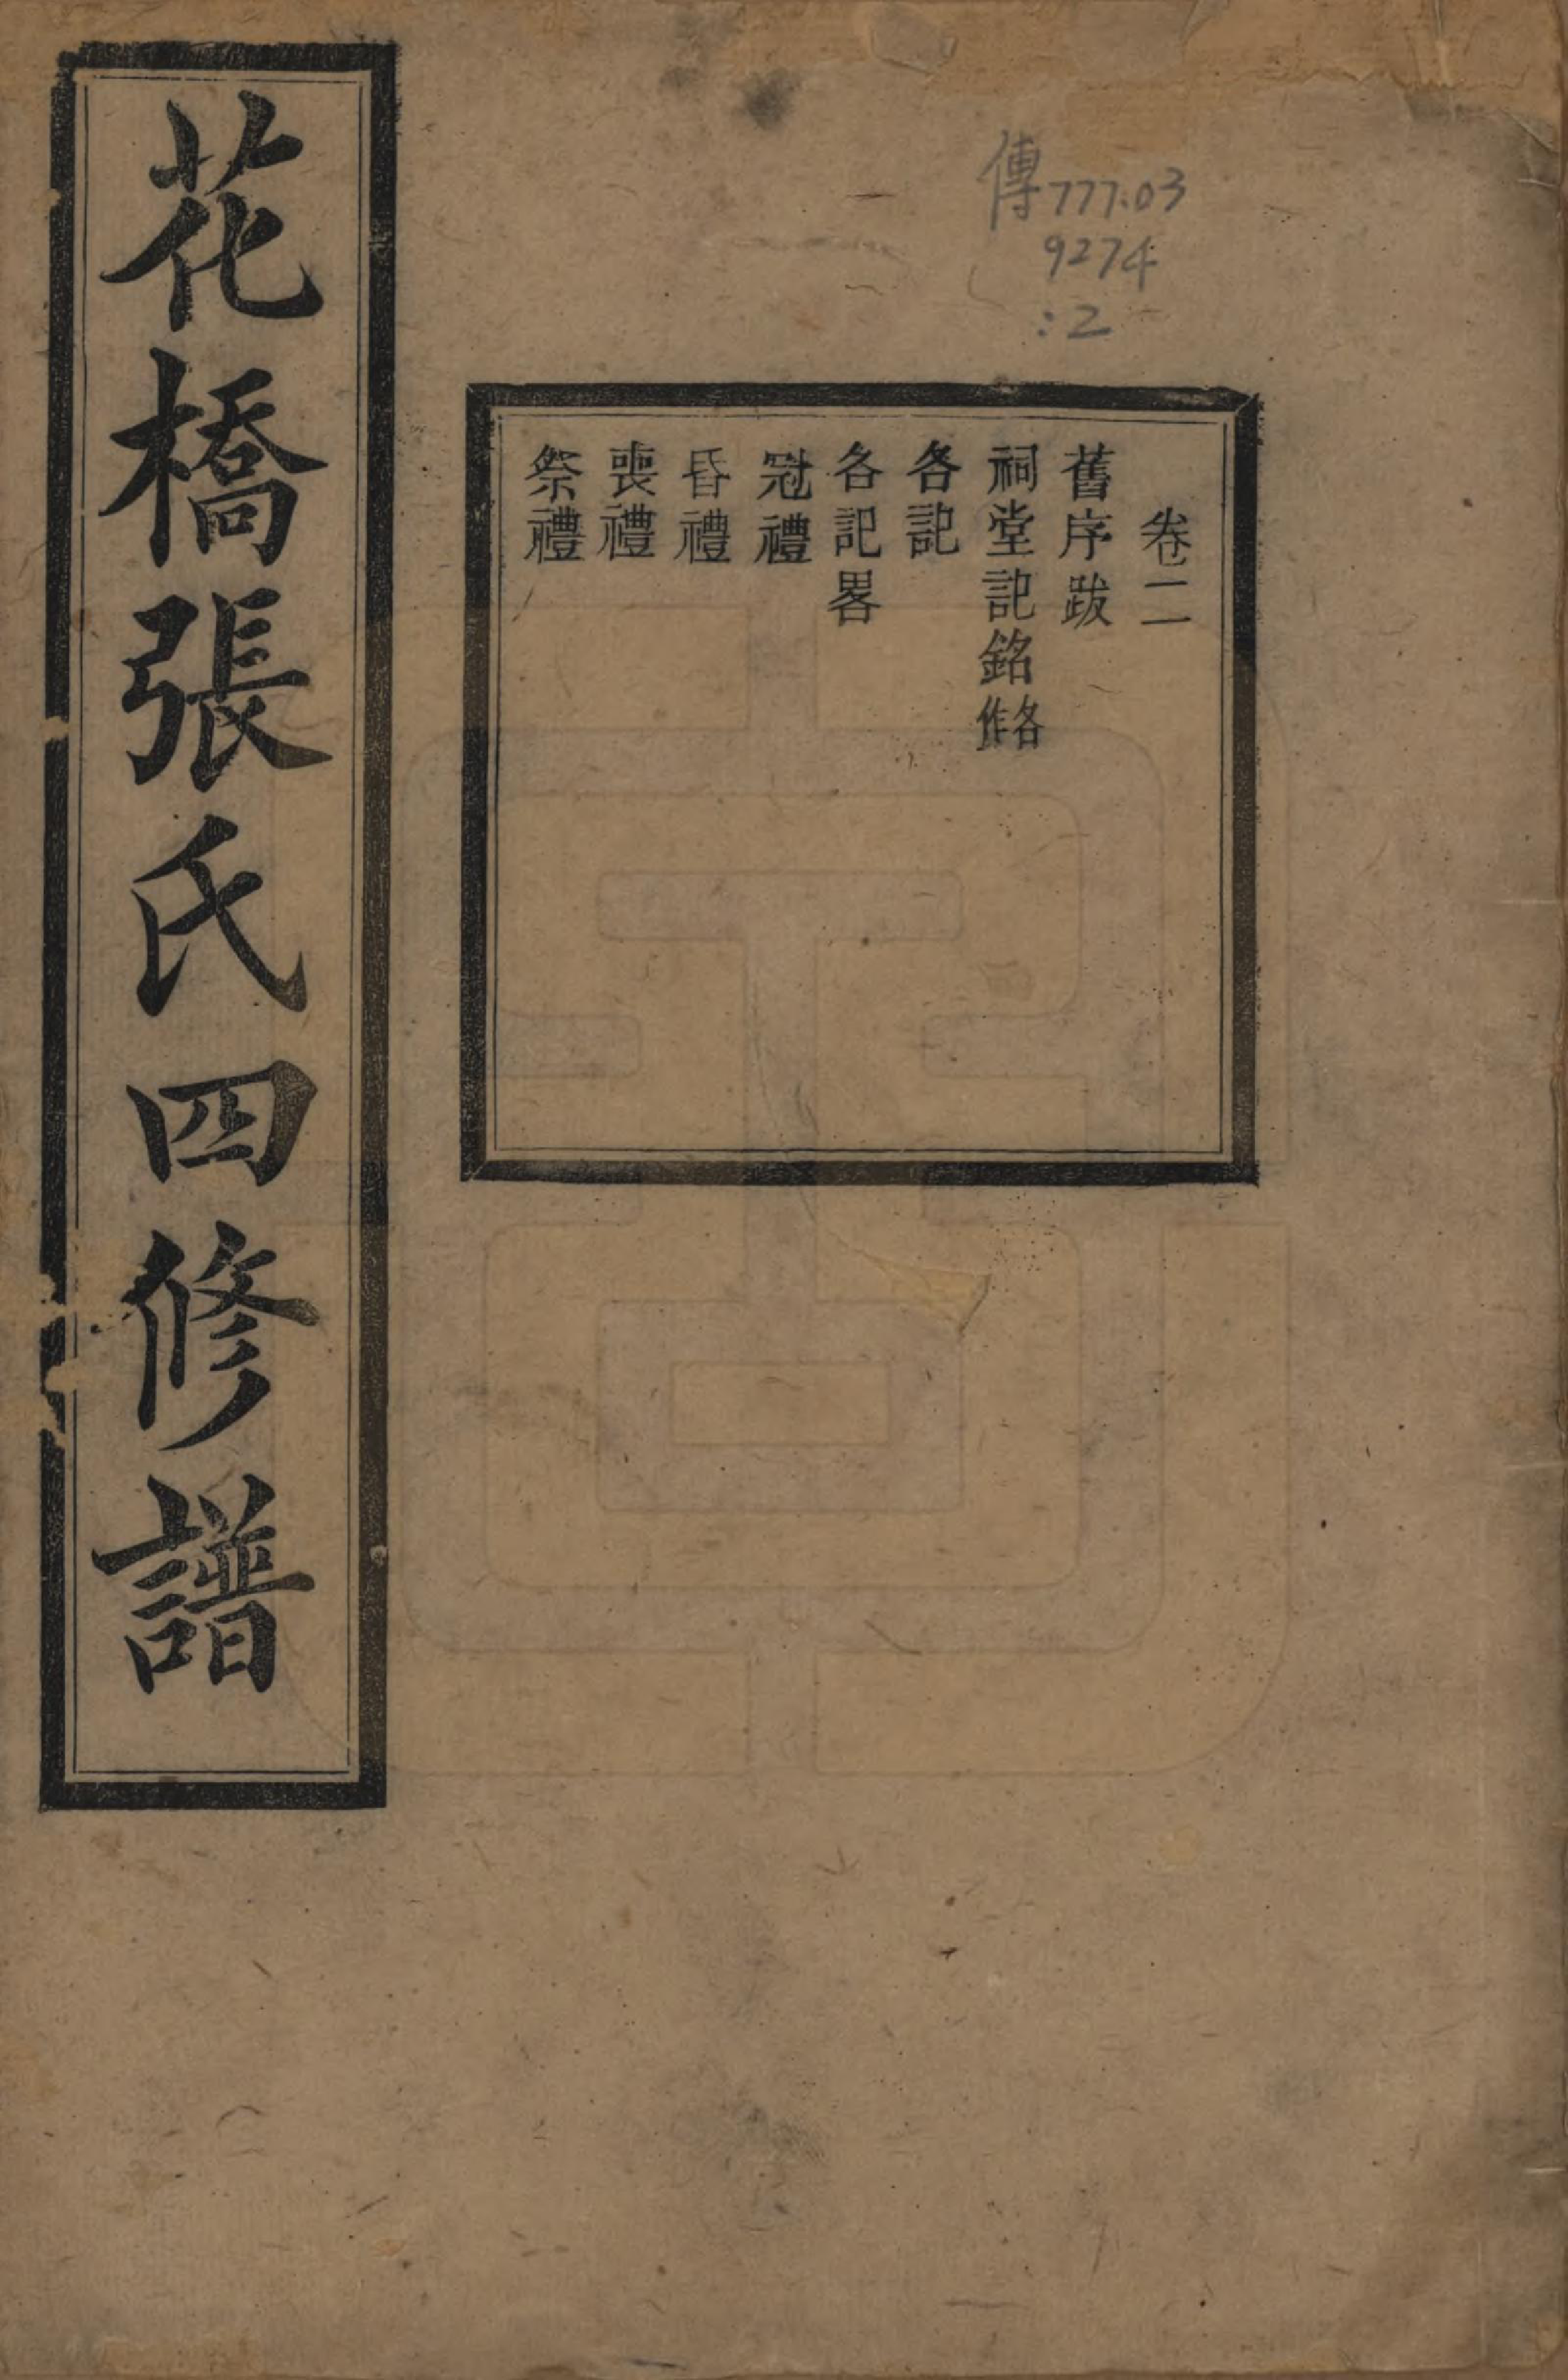 傳777.03
9274
:2
卷二
舊序跋
祠堂記銘各作
各記
各記畧
冠禮
昏禮
喪禮
祭禮
花橋張氏四修譜